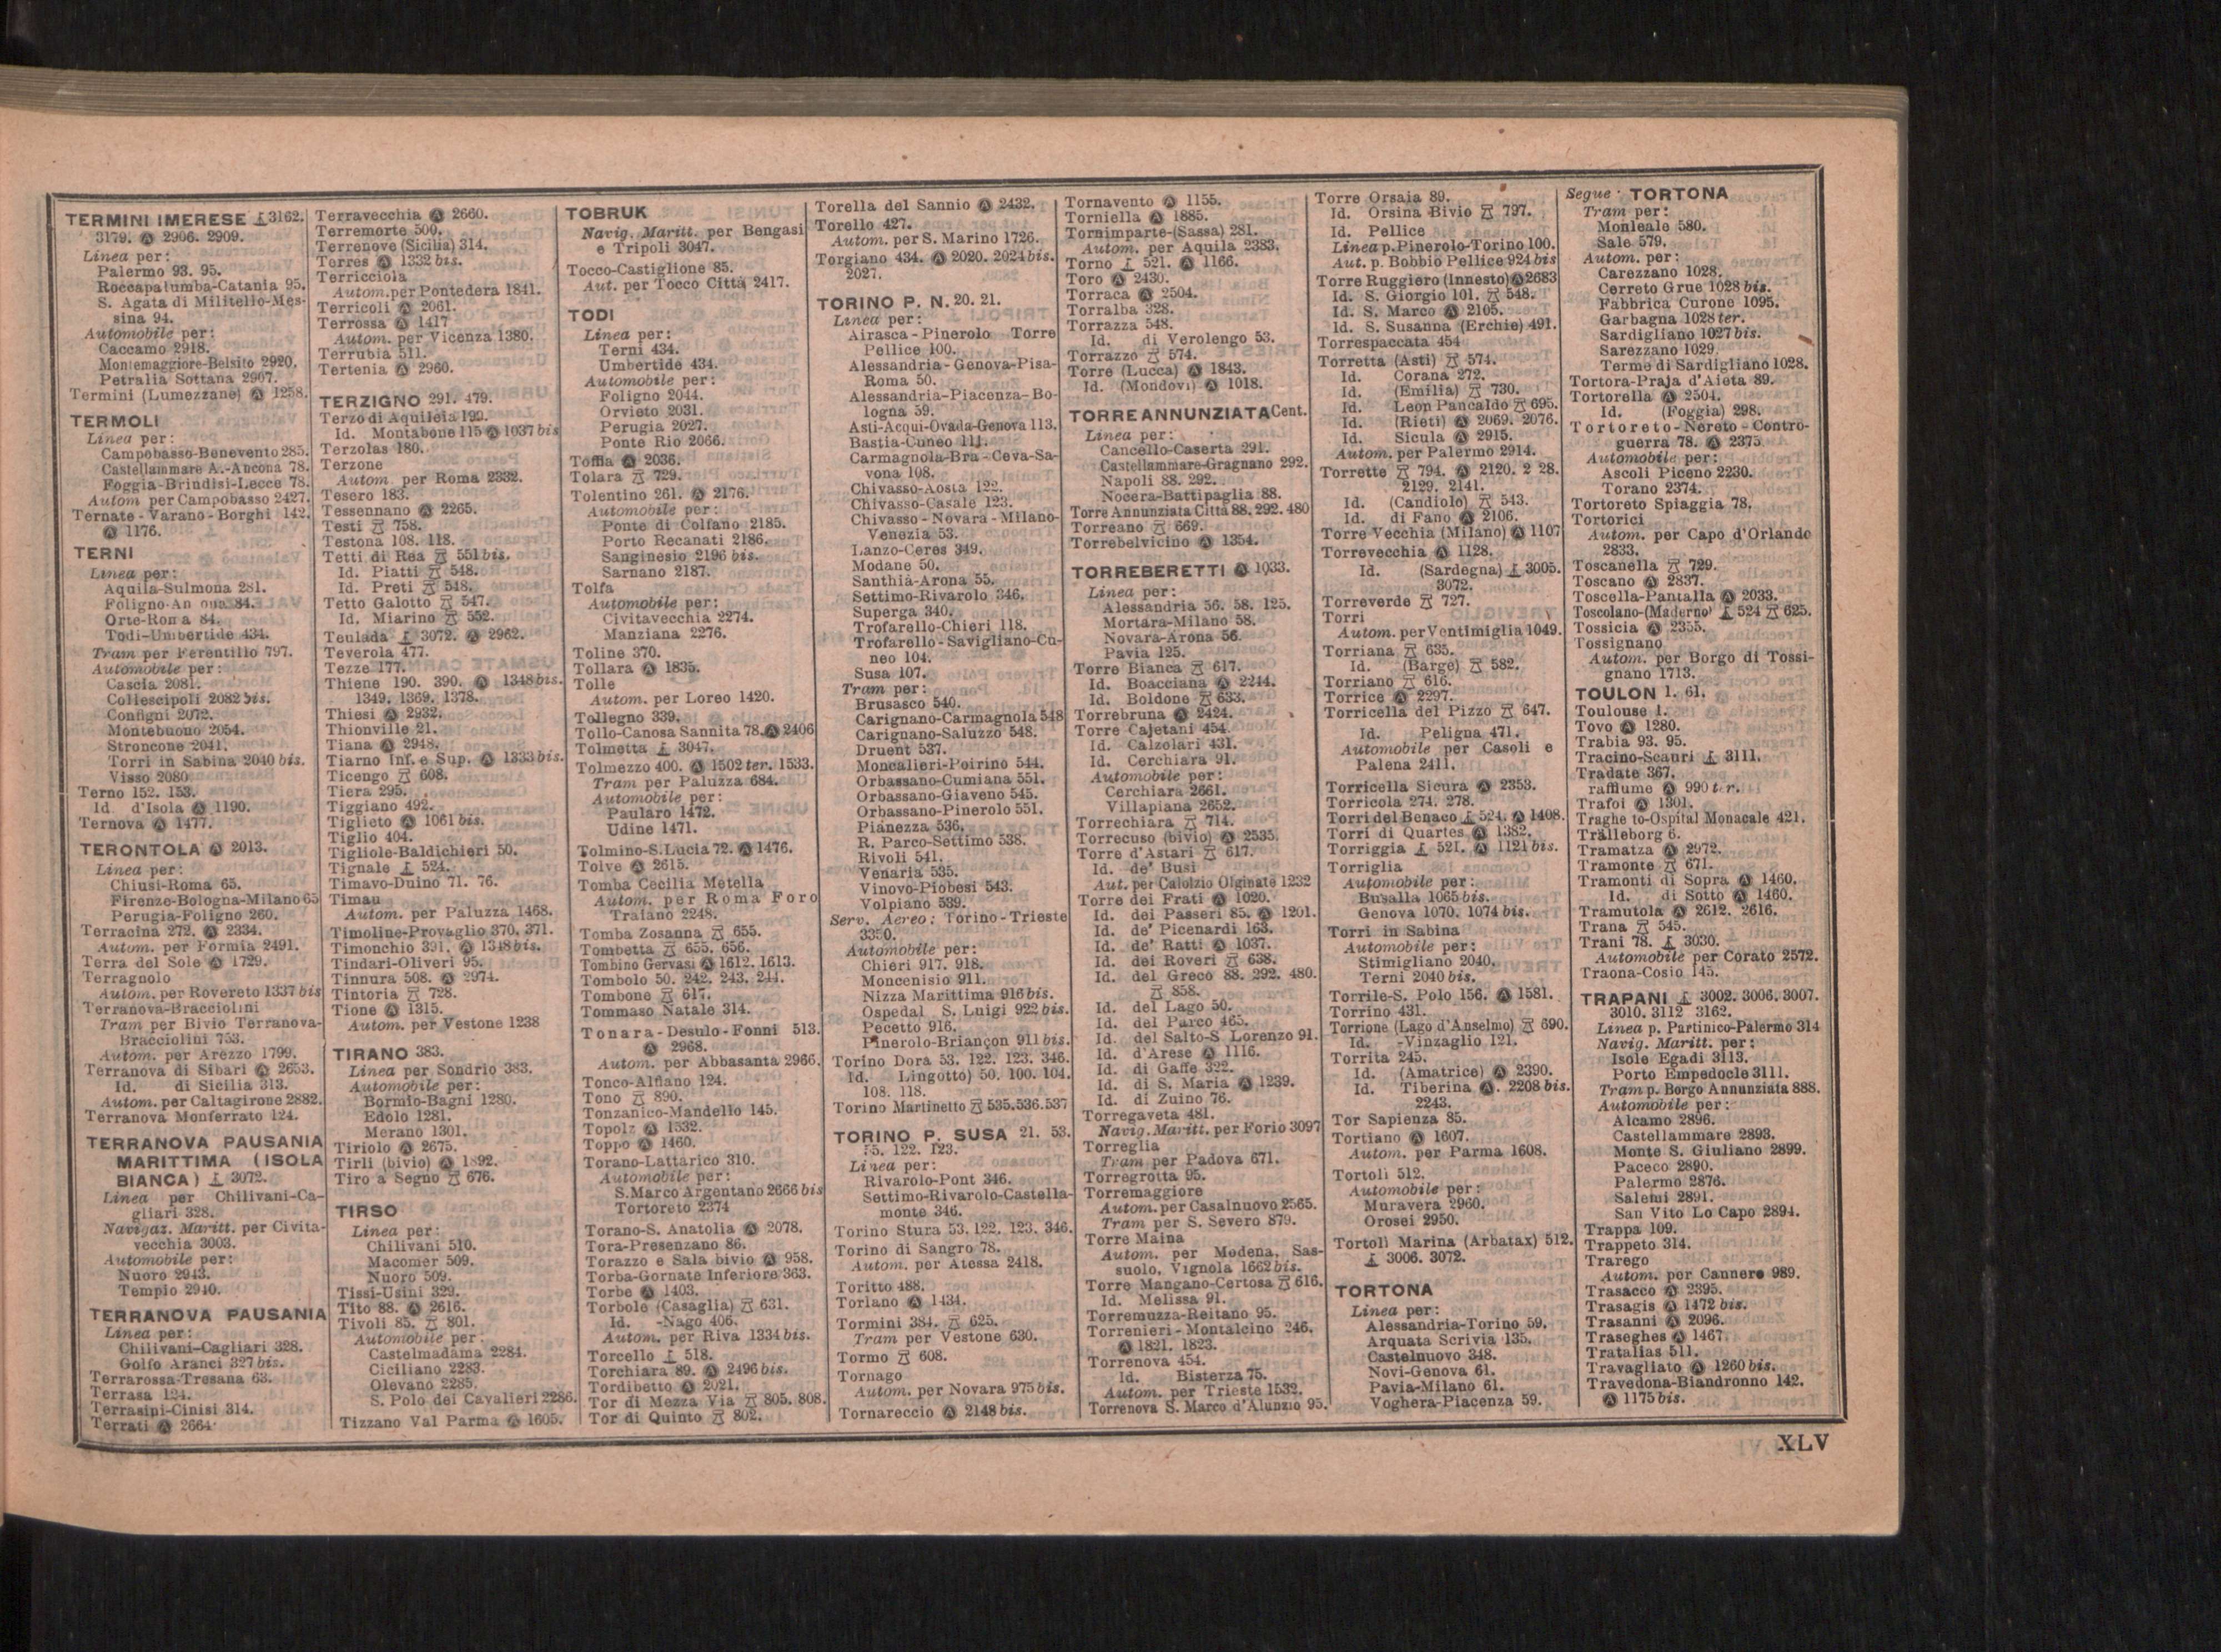 TERMINI IMERESE 3162.
3179. Ⓐ 2906. 2909.
Linea per:
Palermo 93. 95.
Roccapalumba-Catania 95.
S. Agata di Militello-Mes-
sina 94.
Automobile per:
Caccamo 2918.
Montemaggiore-Belsito 2920.
Petralia Sottana 2907.
Termini (Lumezzane) Ⓐ 1258.
TERMOLI
Linea per:
Campobasso-Benevento 285.
Castellammare A.-Ancona 78.
Foggia-Brindisi-Lecce 78.
Autom per Campobasso 2427.
Ternate-Varano-Borghi 142.
Ⓐ 1176.
TERNI
Linea per:
Aquila-Sulmona 281.
Foligno-An ona 84.
Orte-Roma 84.
Todi-Umbertide 434.
Tram per Ferentillo 797.
Automobile per:
Cascia 2081.
Collescipoli 2082 bis.
Configni 2072.
Montebuono 2054.
Stroncone 2041.
Torri in Sabina 2040 bis.
Visso 2080.
Terno 152. 153.
Id. d'Isola Ⓐ 1190.
Ternova Ⓐ 1477.
TERONTOLA Ⓐ 2013.
Linea per:
Chiusi-Roma 65.
Firenze-Bologna-Milano 65
Perugia-Foligno 260.
Terracina 272. Ⓐ 2334.
Autom. per Formia 2491.
Terra del Sole Ⓐ 1729.
Terragnolo
Autom. per Rovereto 1337 bis
Terranova-Bracciolini
Tram per Bivio Terranova-
Bracciolini 753.
Autom. per Arezzo 1799.
Terranova di Sibari Ⓐ 2653.
Id. di Sicilia 313.
Autom. per Caltagirone 2882.
Terranova Monferrato 124.
TERRANOVA PAUSANIA
MARITTIMA (ISOLA
BIANCA) 3072.
Linea per Chilivani-Ca-
gliari 328.
Navigaz. Maritt. per Civita-
vecchia 3003.
Automobile per:
Nuoro 2943.
Tempio 2940.
TERRANOVA PAUSANIA
Linea per:
Chilivani-Cagliari 328.
Golfo Aranci 327 bis.
Terrarossa-Tresana 63.
Terrasa 124.
Terrasini-Cinisi 314.
Terrati Ⓐ 2664
Terravecchia Ⓐ 2660.
Terremorte 500.
Terrenove (Sicilia) 314.
Terres Ⓐ 1332 bis.
Terricciola
Autom. per Pontedera 1841.
Terricoli Ⓐ 2061.
Terrossa Ⓐ 1417
Autom. per Vicenza 1380.
Terrubia 511.
Tertenia Ⓐ 2960.
TERZIGNO 291. 479.
Terzo di Aquileia 199.
Id. Montabone 115 Ⓐ 1037 bis
Terzolas 180.
Terzone
Autom. per Roma 2332.
Tesero 183.
Tessennano Ⓐ 2265.
Testi 758.
Testona 108. 118.
Tetti di Rea 551 bis.
Id. Piatti 548.
Id. Preti 548.
Tetto Galotto 547.
Id. Miarino 552.
Teulada 3072. Ⓐ 2962.
Teverola 477.
Tezze 177.
Thiene 190. 390. Ⓐ 1348 bis.
1349. 1369. 1378.
Thiesi Ⓐ 2932.
Thionville 21.
Tiana Ⓐ 2948.
Tiarno Inf. e Sup. Ⓐ 1333 bis.
Ticengo 608.
Tiera 295.
Tiggiano 492.
Tiglieto Ⓐ 1061 bis.
Tiglio 404.
Tigliole-Baldichieri 50.
Tignale 524.
Timavo-Duino 71. 76.
Timau
Autom. per Paluzza 1468.
Timoline-Provaglio 370. 371.
Timonchio 391. Ⓐ 1348 bis.
Tindari-Oliveri 95.
Tinnura 508. Ⓐ 2974.
Tintoria 728.
Tione Ⓐ 1315.
Autom. per Vestone 1238
TIRANO 383.
Linea per Sondrio 383.
Automobile per:
Bormio-Bagni 1280.
Edolo 1281.
Merano 1301.
Tiriolo Ⓐ 2675.
Tirli (bivio) Ⓐ 1892.
Tiro a Segno 676.
TIRSO
Linea per:
Chilivani 510.
Macomer 509.
Nuoro 509.
Tissi-Usini 329.
Tito 88. Ⓐ 2616.
Tivoli 85. 801.
Automobile per:
Castelmadama 2284.
Ciciliano 2283.
Olevano 2285.
S. Polo dei Cavalieri 2286.
Tizzano Val Parma Ⓐ 1605.
TOBRUK
Navig. Maritt. per Bengasi
e Tripoli 3047.
Tocco-Castiglione 85.
Aut. per Tocco Città 2417.
TODI
Linea per:
Terni 434.
Umbertide 434.
Automobile per:
Foligno 2044.
Orvieto 2031.
Perugia 2027.
Ponte Rio 2066.
Toffia Ⓐ 2036.
Tolara 729.
Tolentino 261. Ⓐ 2176.
Automobile per:
Ponte di Colfano 2185.
Porto Recanati 2186.
Sanginesio 2196 bis.
Sarnano 2187.
Tolfa
Automobile per:
Civitavecchia 2274.
Manziana 2276.
Toline 370.
Tollara Ⓐ 1835.
Tolle
Autom. per Loreo 1420.
Tollegno 339.
Tollo-Canosa Sannita 78. Ⓐ 2406
Tolmetta 3047.
Tolmezzo 400. Ⓐ 1502 ter. 1533.
Tram per Paluzza 684.
Automobile per:
Paularo 1472.
Udine 1471.
Tolmino-S. Lucia 72. Ⓐ 1476.
Tolve Ⓐ 2615.
Tomba Cecilia Metella
Autom. per Roma Foro
Traiano 2248.
Tomba Zosanna 655.
Tombetta 655. 656.
Tombino Gervasi Ⓐ 1612. 1613.
Tombolo 50. 242. 243. 244.
Tombone 617.
Tommaso Natale 314.
Tonara-Desulo-Fonni 513.
Ⓐ 2968.
Autom. per Abbasanta 2966.
Tonco-Alfiano 124.
Tono 890.
Tonzanico-Mandello 145.
Topolz Ⓐ 1532.
Toppo Ⓐ 1460.
Torano-Lattarico 310.
Automobile per:
S. Marco Argentano 2666 bis
Tortoreto 2374
Torano-S. Anatolia Ⓐ 2078.
Tora-Presenzano 86.
Torazzo e Sala bivio Ⓐ 958.
Torba-Gornate Inferiore 363.
Torbe Ⓐ 1403.
Torbole (Casaglia) 631.
Id. -Nago 406.
Autom. per Riva 1334 bis.
Torcello 518.
Torchiara 89. Ⓐ 2496 bis.
Tordibetto Ⓐ 2021.
Tor di Mezza Via 805. 808.
Tor di Quinto 802.
Torella del Sannio Ⓐ 2432.
Torello 427.
Autom. per S. Marino 1726.
Torgiano 434. Ⓐ 2020. 2024 bis.
2027.
TORINO P. N. 20. 21.
Linea per:
Airasca-Pinerolo Torre
Pellice 100.
Alessandria-Genova-Pisa-
Roma 50.
Alessandria-Piacenza-Bo-
logna 59.
Asti-Acqui-Ovada-Genova 113.
Bastia-Cuneo 111.
Carmagnola-Bra-Ceva-Sa-
vona 108.
Chivasso-Aosta 122.
Chivasso-Casale 123.
Chivasso-Novara-Milano-
Venezia 53.
Lanzo-Ceres 349.
Modane 50.
Santhià-Arona 55.
Settimo-Rivarolo 346.
Superga 340.
Trofarello-Chieri 118.
Trofarello-Savigliano-Cu-
neo 104.
Susa 107.
Tram per:
Brusasco 540.
Carignano-Carmagnola 548
Carignano-Saluzzo 548.
Druent 537.
Moncalieri-Poirino 544.
Orbassano-Cumiana 551.
Orbassano-Giaveno 545.
Orbassano-Pinerolo 551.
Pianezza 536.
R. Parco-Settimo 538.
Rivoli 541.
Venaria 535.
Vinovo-Piobesi 543.
Volpiano 539.
Serv. Aereo: Torino-Trieste
3350.
Automobile per:
Chieri 917. 918.
Moncenisio 911.
Nizza Marittima 916 bis.
Ospedal S. Luigi 922 bis.
Pecetto 916.
Pinerolo-Briançon 911 bis.
Torino Dora 53. 122. 123. 346.
Id. Lingotto) 50. 100. 104.
108. 118.
Torino Martinetto 535. 536. 537
TORINO P. SUSA 21. 53.
55. 122. 123.
Linea per:
Rivarolo-Pont 346.
Settimo-Rivarolo-Castella-
monte 346.
Torino Stura 53. 122. 123. 346.
Torino di Sangro 78.
Autom. per Atessa 2418.
Toritto 488.
Torlano Ⓐ 1434.
Tormini 384. 625.
Tram per Vestone 630.
Tormo 608.
Tornago
Autom. per Novara 975 bis.
Tornareccio Ⓐ 2148 bis.
Tornavento Ⓐ 1155.
Torniella Ⓐ 1885.
Tornimparte-(Sassa) 281.
Autom. per Aquila 2383.
Torno 521. Ⓐ 1166.
Toro Ⓐ 2430.
Torraca Ⓐ 2504.
Torralba 328.
Torrazza 548.
Id. di Verolengo 53.
Torrazzo 574.
Torre (Lucca) Ⓐ 1843.
Id. (Mondovi) Ⓐ 1018.
TORRE ANNUNZIATA Cent.
Linea per:
Cancello-Caserta 291.
Castellammare-Gragnano 292.
Napoli 88. 292.
Nocera-Battipaglia 88.
Torre Annunziata Città 88. 292. 480
Torreano 669.
Torrebelvicino Ⓐ 1354.
TORREBERETTI Ⓐ 1033.
Linea per:
Alessandria 56. 58. 125.
Mortara-Milano 58.
Novara-Arona 56.
Pavia 125.
Torre Bianca 617.
Id. Boacciana Ⓐ 2244.
Id. Boldone 633.
Torrebruna Ⓐ 2424.
Torre Cajetani 454.
Id. Calzolari 431.
Id. Cerchiara 91.
Automobile per:
Cerchiara 2661.
Villapiana 2652.
Torrechiara 714.
Torrecuso (bivio) Ⓐ 2535.
Torre d'Astari 617.
Id. de' Busi
Aut. per Calolzio Olginate 1232
Torre dei Frati Ⓐ 1020.
Id. dei Passeri 85. Ⓐ 1201.
Id. de' Picenardi 163.
Id. de' Ratti Ⓐ 1037.
Id. dei Roveri 638.
Id. del Greco 88. 292. 480.
858.
Id. del Lago 50.
Id. del Parco 465.
Id. del Salto-S Lorenzo 91.
Id. d'Arese Ⓐ 1116.
Id. di Gaffe 322.
Id. di S. Maria Ⓐ 1239.
Id. di Zuino 76.
Torregaveta 481.
Navig. Maritt. per Forio 3097
Torreglia
Tram per Padova 671.
Torregrotta 95.
Torremaggiore
Autom. per Casalnuovo 2565.
Tram per S. Severo 879.
Torre Maina
Autom. per Modena, Sas-
suolo, Vignola 1662 bis.
Torre Mangano-Certosa 616.
Id. Melissa 91.
Torremuzza-Reitano 95.
Torrenieri-Montalcino 246.
Ⓐ 1821. 1823.
Torrenova 454.
Id. Bisterza 75.
Autom. per Trieste 1532.
Torrenova S. Marco d'Alunzio 95.
Torre Orsaia 89.
Id. Orsina Bivio 797.
Id. Pellice
Linea p. Pinerolo-Torino 100.
Aut. p. Bobbio Pellice 924 bis
Torre Ruggiero (Innesto) Ⓐ 2683
Id. S. Giorgio 101. 548.
Id. S. Marco Ⓐ 2105.
Id. S. Susanna (Erchie) 491.
Torrespaccata 454
Torretta (Asti) 574.
Id. Corana 272.
Id. (Emilia) 730.
Id. Leon Pancaldo 695.
Id. (Rieti) Ⓐ 2069. 2076.
Id. Sicula Ⓐ 2915.
Autom. per Palermo 2914.
Torrette 794. Ⓐ 2120. 2 28.
2129. 2141.
Id. (Candiolo) 543.
Id. di Fano Ⓐ 2106.
Torre Vecchia (Milano) Ⓐ 1107
Torrevecchia Ⓐ 1128.
Id. (Sardegna) 3005.
3072.
Torreverde 727.
Torri
Autom. per Ventimiglia 1049.
Torriana 635.
Id. (Barge) 582.
Torriano 616.
Torrice Ⓐ 2297.
Torricella del Pizzo 647.
Id. Peligna 471.
Automobile per Casoli e
Palena 2411.
Torricella Sicura Ⓐ 2353.
Torricola 274. 278.
Torri del Benaco 524. Ⓐ 1408.
Torri di Quartes Ⓐ 1382.
Torriggia 521. Ⓐ 1121 bis.
Torriglia
Automobile per:
Busalla 1065 bis.
Genova 1070. 1074 bis.
Torri in Sabina
Automobile per:
Stimigliano 2040.
Terni 2040 bis.
Torrile-S. Polo 156. Ⓐ 1581.
Torrino 431.
Torrione (Lago d'Anselmo) 690.
Id. -Vinzaglio 121.
Torrita 245.
Id. (Amatrice) Ⓐ 2390.
Id. Tiberina Ⓐ. 2208 bis.
2243.
Tor Sapienza 85.
Tortiano Ⓐ 1607.
Autom. per Parma 1608.
Tortolì 512.
Automobile per:
Muravera 2960.
Orosei 2950.
Tortolì Marina (Arbatax) 512.
3006. 3072.
TORTONA
Linea per:
Alessandria-Torino 59.
Arquata Scrivia 135.
Castelnuovo 348.
Novi-Genova 61.
Pavia-Milano 61.
Voghera-Piacenza 59.
Segue: TORTONA
Tram per:
Monleale 580.
Sale 579.
Autom. per:
Carezzano 1028.
Cerreto Grue 1028 bis.
Fabbrica Curone 1095.
Garbagna 1028 ter.
Sardigliano 1027 bis.
Sarezzano 1029.
Terme di Sardigliano 1028.
Tortora-Praja d'Aieta 89.
Tortorella Ⓐ 2504.
Id. (Foggia) 298.
Tortoreto-Nereto-Contro-
guerra 78. Ⓐ 2375
Automobile per:
Ascoli Piceno 2230.
Torano 2374.
Tortoreto Spiaggia 78.
Tortorici
Autom. per Capo d'Orlando
2833.
Toscanella 729.
Toscano Ⓐ 2837.
Toscella-Pantalla Ⓐ 2033.
Toscolano-(Maderno) 524 625.
Tossicia Ⓐ 2355.
Tossignano
Autom. per Borgo di Tossi-
gnano 1713.
TOULON 1. 61.
Toulouse 1.
Tovo Ⓐ 1280.
Trabia 93. 95.
Tracino-Scauri 3111.
Tradate 367.
raffiume Ⓐ 990 t r.
Trafoi Ⓐ 1301.
Traghe to-Ospital Monacale 421.
Trälleborg 6.
Tramatza Ⓐ 2972.
Tramonte 671.
Tramonti di Sopra Ⓐ 1460.
Id. di Sotto Ⓐ 1460.
Tramutola Ⓐ 2612. 2616.
Trana 545.
Trani 78. 3030.
Automobile per Corato 2572.
Traona-Cosio 145.
TRAPANI 3002. 3006. 3007.
3010. 3112 3162.
Linea p. Partinico-Palermo 314
Navig. Maritt. per:
Isole Egadi 3113.
Porto Empedocle 3111.
Tram p. Borgo Annunziata 888.
Automobile per:
Alcamo 2896.
Castellammare 2893.
Monte S. Giuliano 2899.
Paceco 2890.
Palermo 2876.
Salemi 2891.
San Vito Lo Capo 2894.
Trappa 109.
Trappeto 314.
Trarego
Autom. per Cannero 989.
Trasacco Ⓐ 2395.
Trasagis Ⓐ 1472 bis.
Trasanni Ⓐ 2096.
Traseghes Ⓐ 1467.
Tratalias 511.
Travagliato Ⓐ 1260 bis.
Travedona-Biandronno 142.
Ⓐ 1175 bis.
XLV